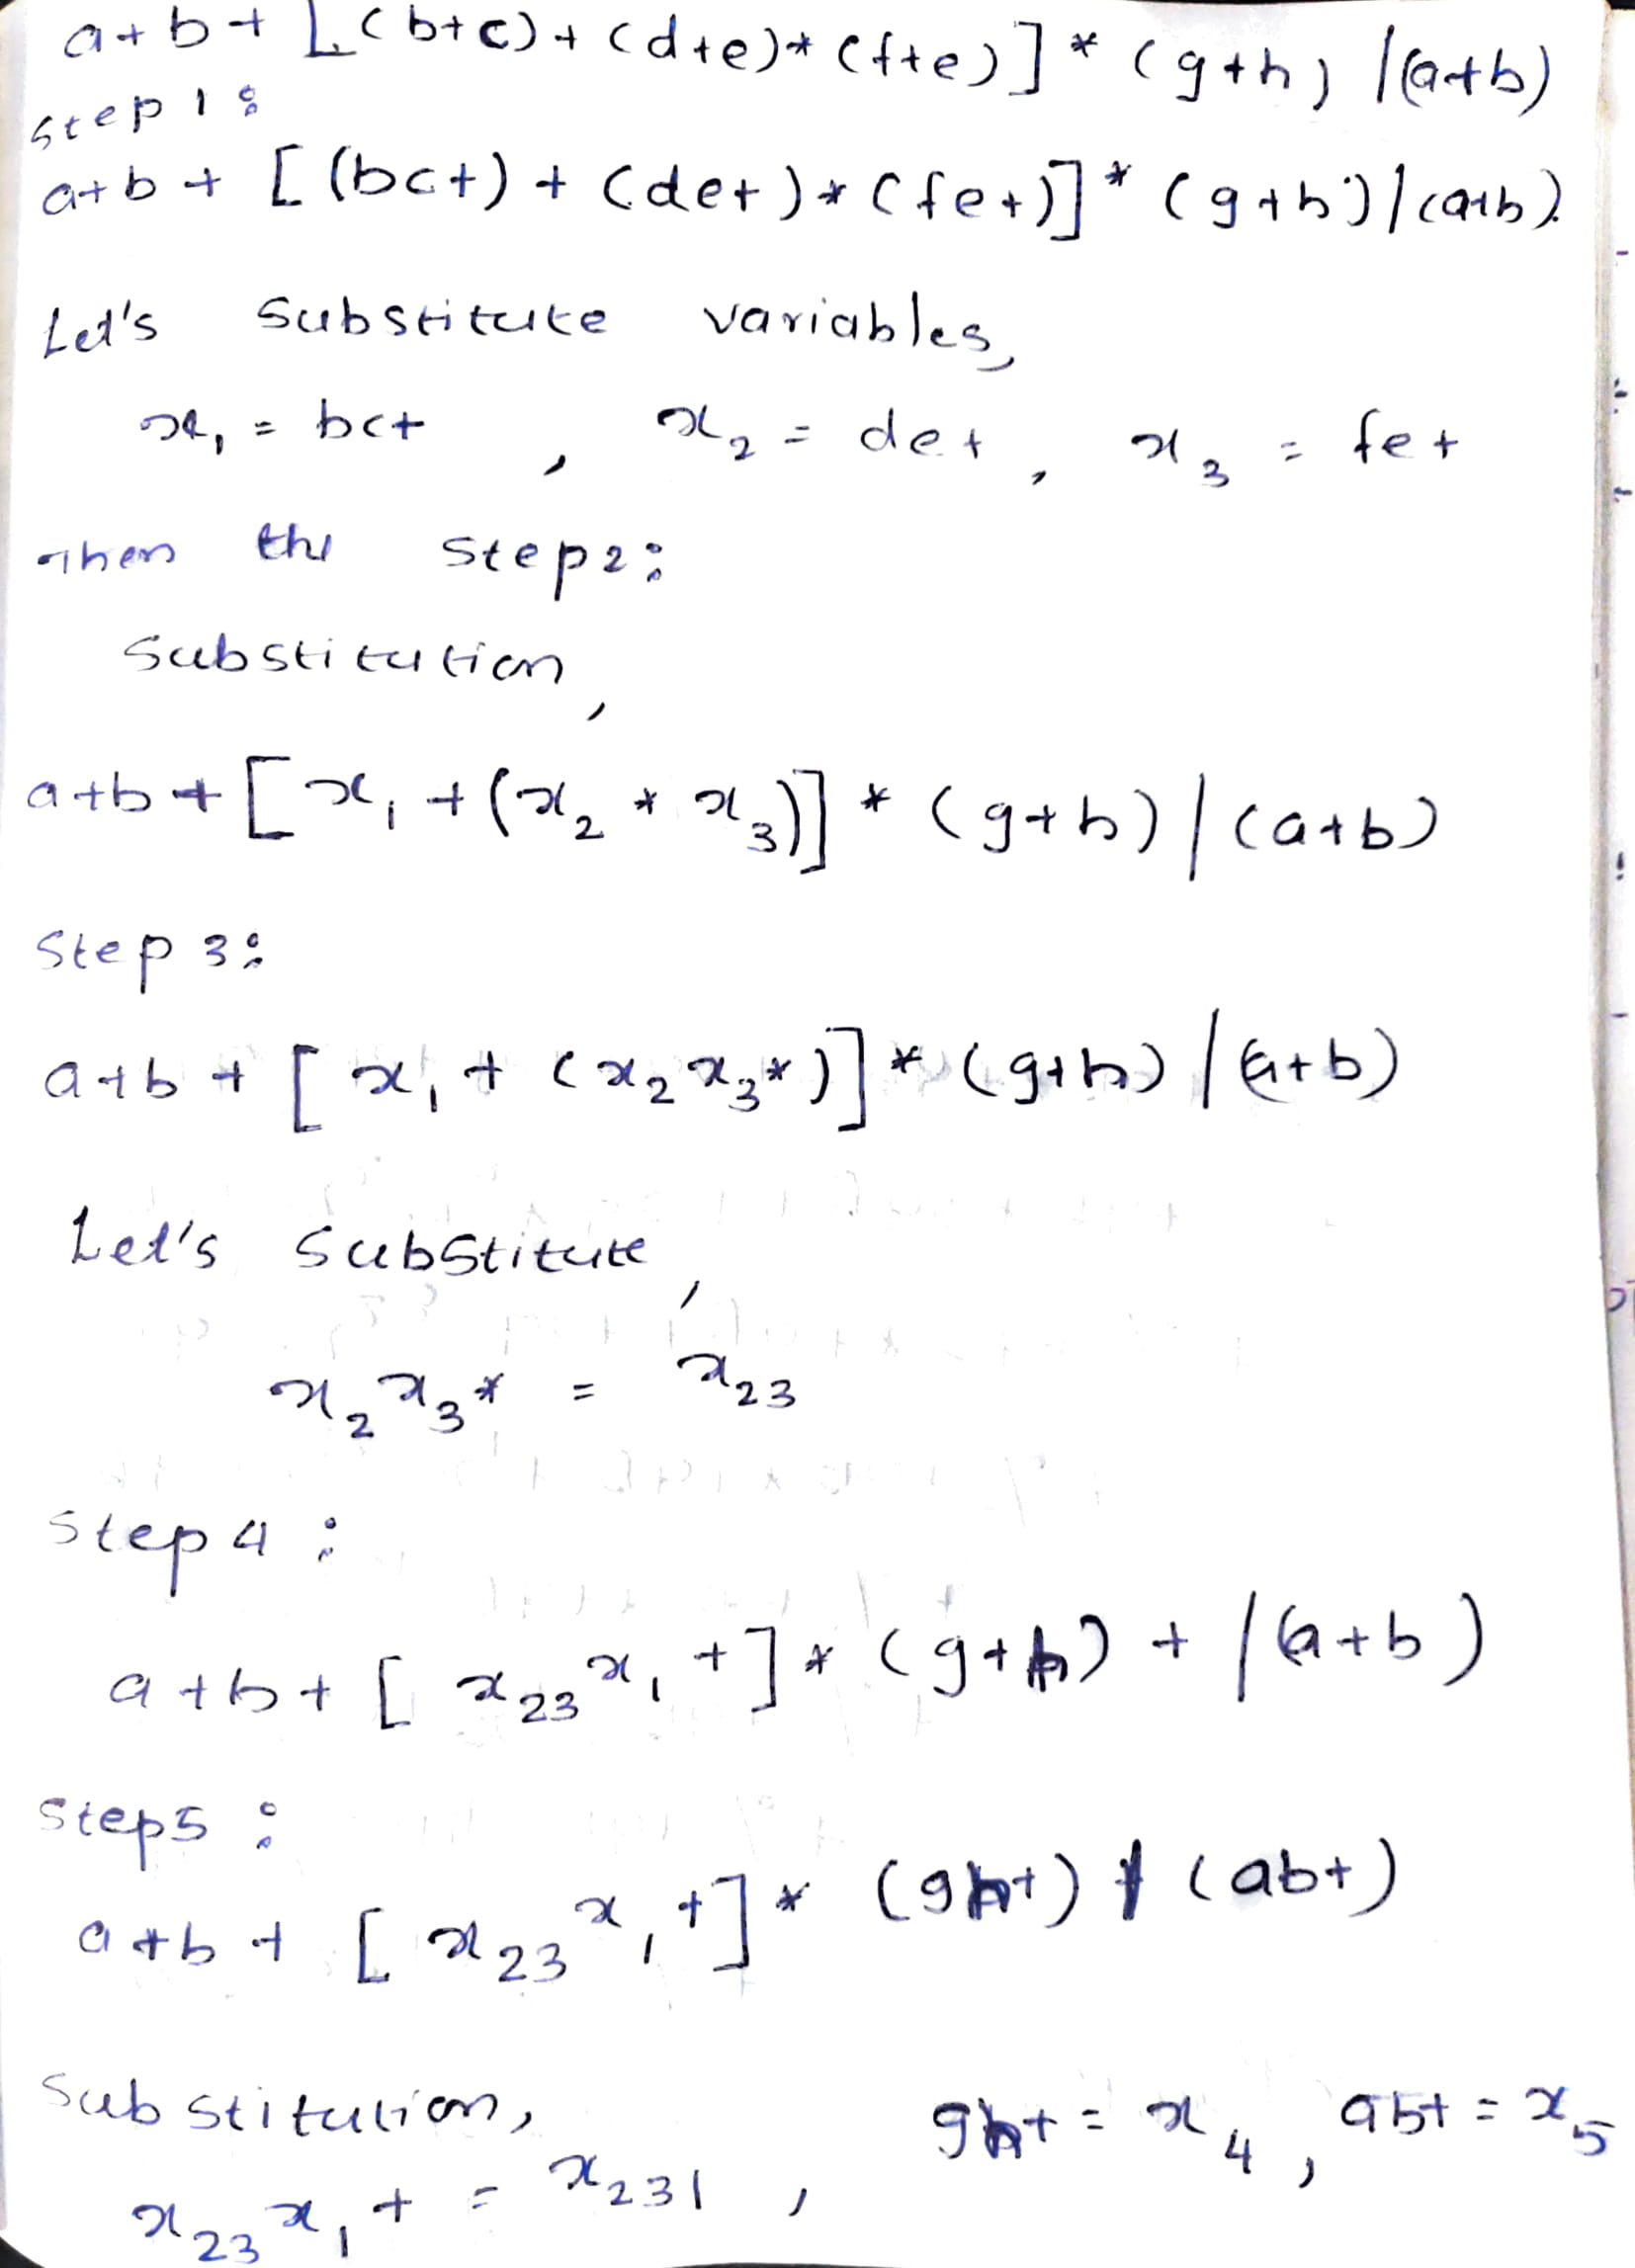 a+b+[(b+c)+(d+e)*(f+e)]*(g+h)/(a+b)
step 1:
a+b+[(bc+)+(de+)*(fe+)]*(g+h)/(a+b).
Let's substitute variables,
x₁ = bc+ , x₂ = de+ , x₃ = fe+
Then the step2:
Substitution,
a+b+[x₁+(x₂*x₃)]*(g+h)/(a+b)
Step 3:
a+b+[x₁+(x₂x₃*)]*(g+h)/(a+b)
Let's substitute,
x₂x₃* = x₂₃
Step 4:
a+b+[x₂₃x₁+]*(g+h)+/(a+b)
Step5:
a+b+[x₂₃x₁+]*(gh+)/(ab+)
Substitution, gh+ = x₄, ab+ = x₅
x₂₃x₁+ = x₂₃₁,